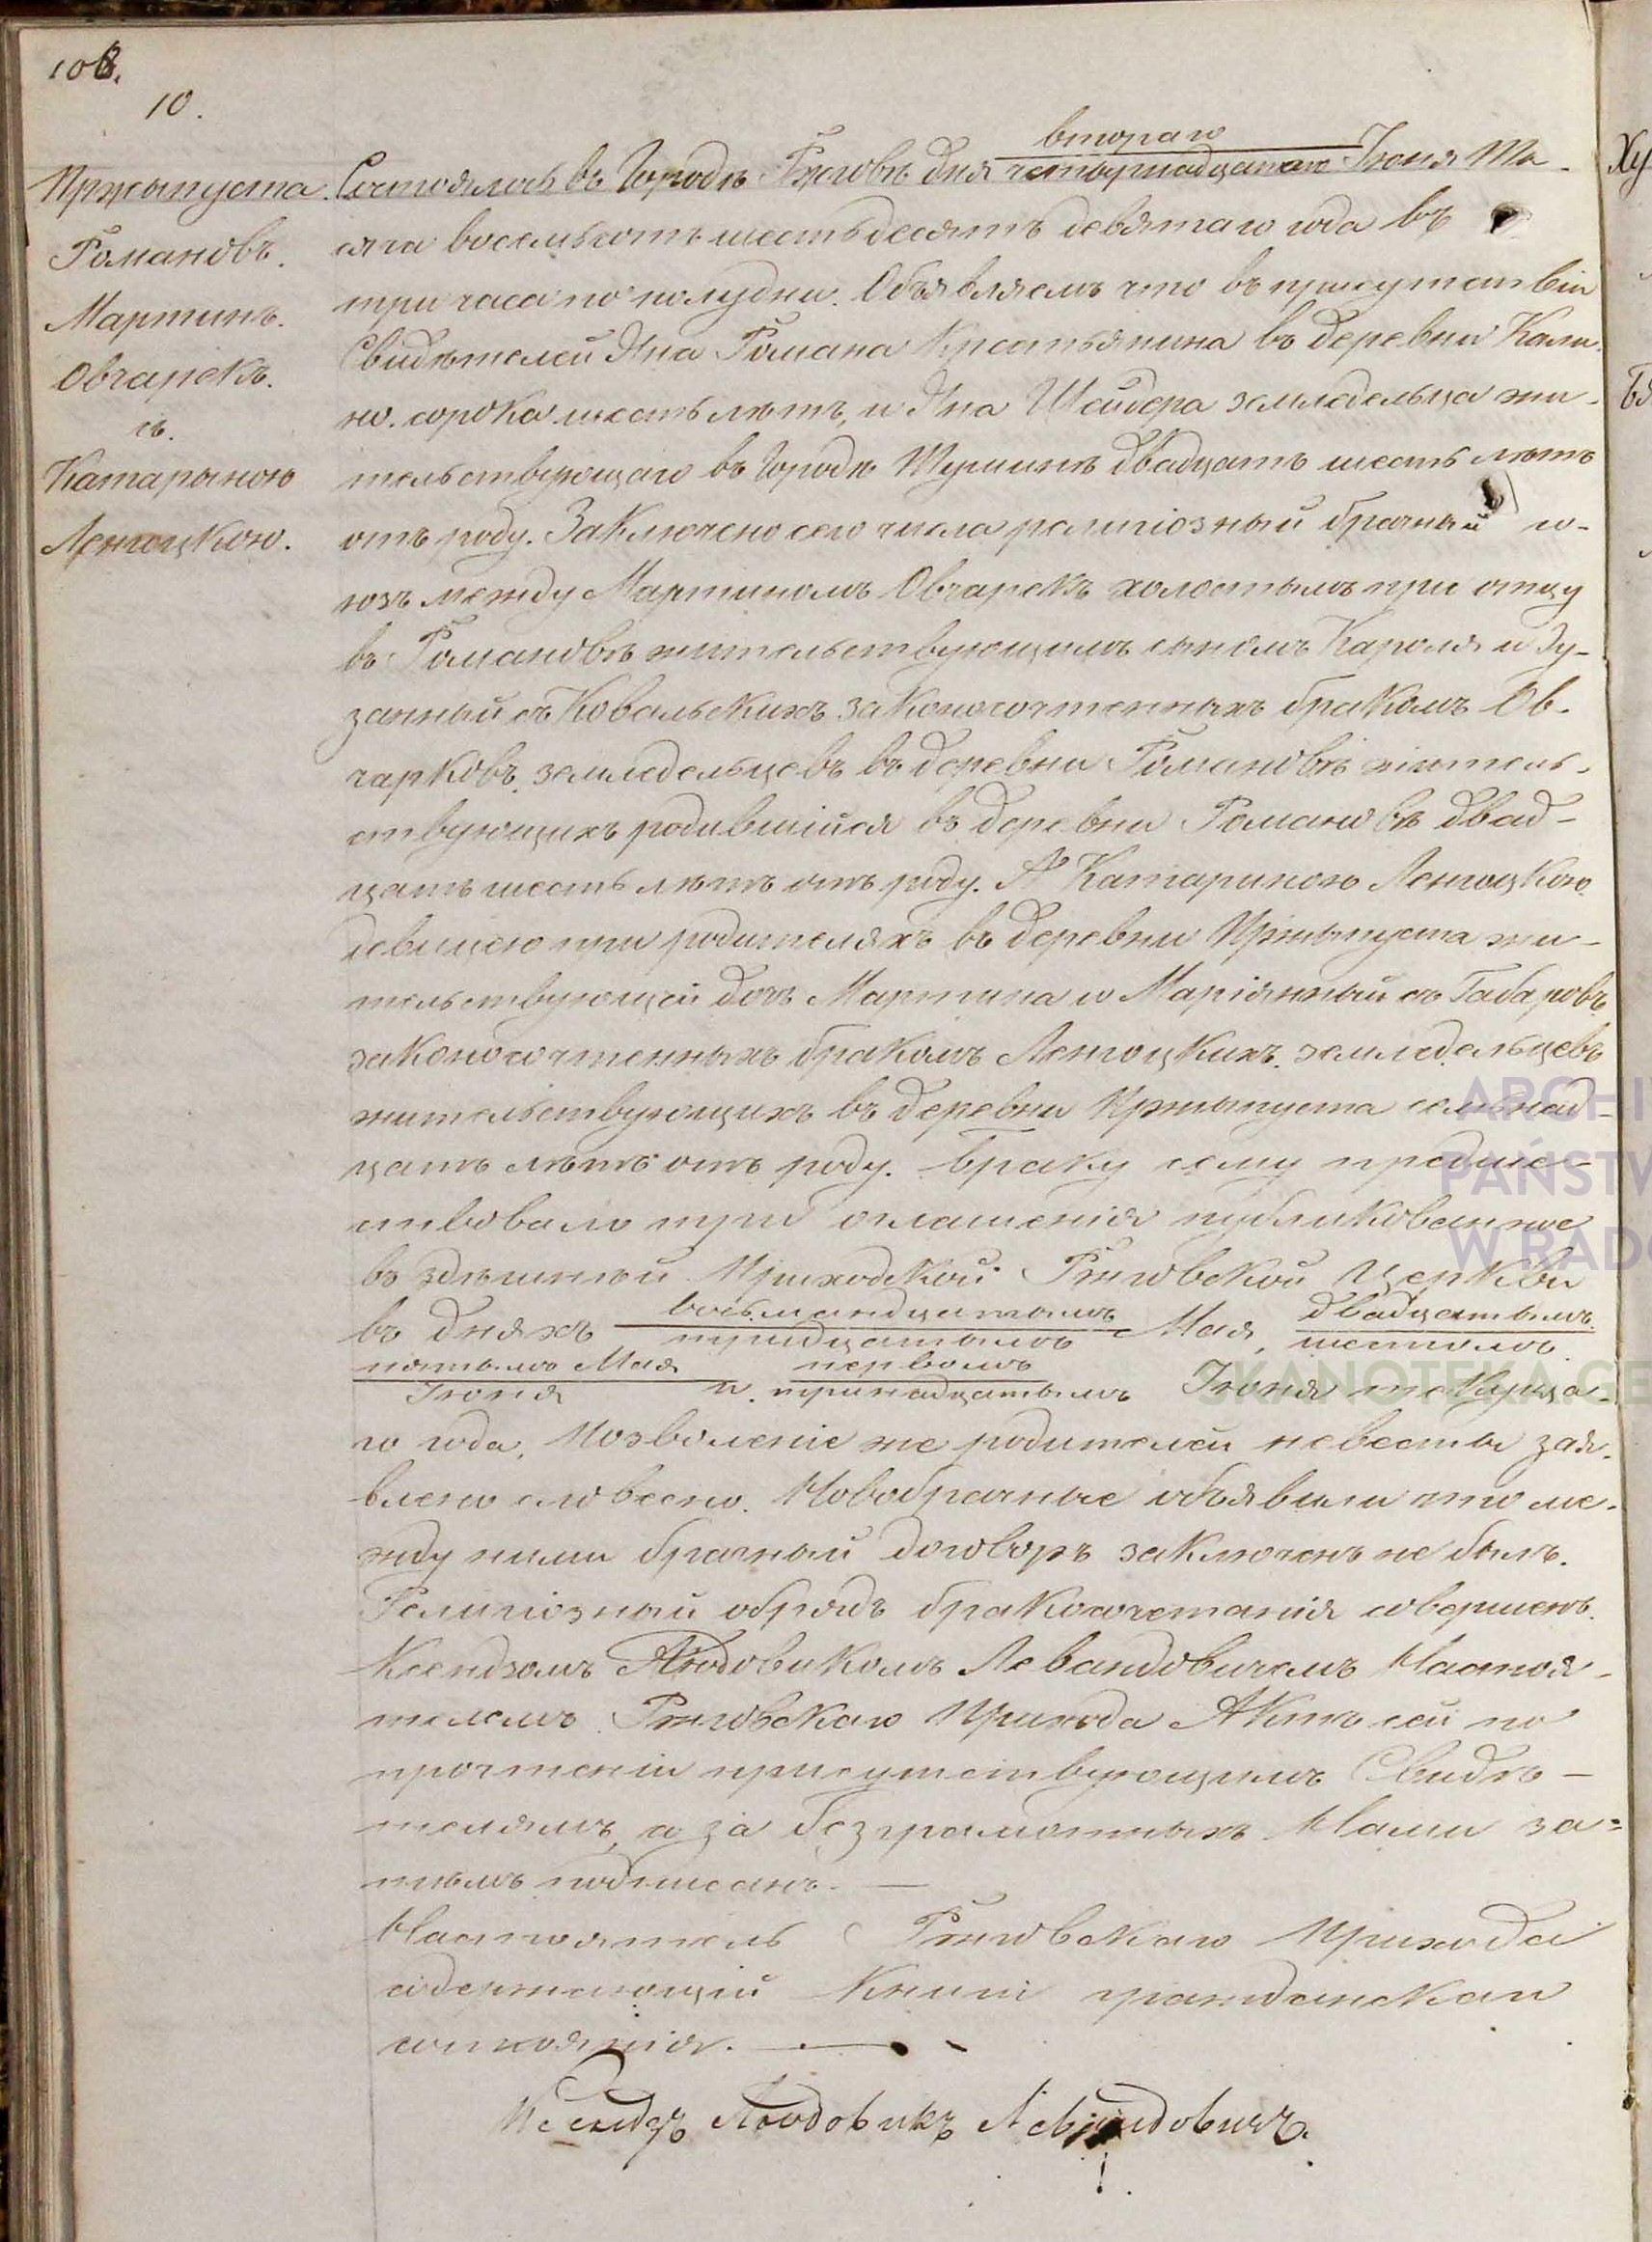 108.
10.
Пржыпуста.
Романовъ.
Мартинъ.
Овчарекъ.
съ.
Катарыною
Ленгоцкою.
втораго
Состоялось въ Городѣ Рыговѣ дня четырнадцатаго Іюня Ты-
сяча восемьсотъ шестьдесятъ девятаго года въ
три часа по полудни. Объявляемъ что въ присутствіи
Свидѣтелей Яна Романа Крестьянина въ деревни Кали-
но. сорока шесть лѣтъ, и Яна Шнейдера земледельца жи-
тельствующаго въ Городѣ Тушинѣ двадцать шесть лѣтъ
отъ роду. Заключено сего числа религіозный брачный со-
юзъ между Мартиномъ Овчарекъ холостымъ при отцу
въ Романовѣ жительствующимъ сыномъ Кароля и Зу-
занный съ Ковальскихъ законосочтенныхъ бракомъ Ов-
чарковъ, земледельцевъ въ деревни Романовѣ житель-
ствующихъ родившійся въ деревни Романовѣ двад-
цать шесть лѣтъ отъ роду. А Катариною Ленгоцкою
девицею при родителяхъ въ деревни Пржыпуста жи-
тельствующей дочь Мартина и Маріянный съ Габаровъ
законосочтенныхъ бракомъ Ленгоцкихъ. земледельцевъ
жительствующихъ въ деревни Пржыпуста семьнад-
цать лѣтъ отъ роду. Браку сему предше-
ствовало три оглашенія публикованное
въ здѣшный Приходской Рыговской Церкви
въ дняхъ восьмнадцатымъ Мая, двадцатымъ
тридцатымъ шестомъ
пятымъ Мая первомъ
Іюня и тринадцатымъ Іюня текуща-
го года, Позволеніе же родителей невесты зая-
влено словесно. Новобрачные объявили что ме-
жду ними брачный договоръ заключенъ не былъ.
Религіозный обрядъ бракосочетанія совершенъ
Ксендзомъ Людовикомъ Левандовичемъ Настоя-
телемъ Рыговскаго Прихода Актъ сей по
прочтеніи присутствующимъ Свидѣ-
телямъ, а за безграмотныхъ Нами за-
тѣмъ подписанъ. —
Настоятель Рыговскаго Прихода
содержающій Книги гражданскаи
состоянія. —
Ксендзъ Людовикъ Левандовичъ.
ARCHI
PAŃSTW
W RADO
SKANOTEKA.GE